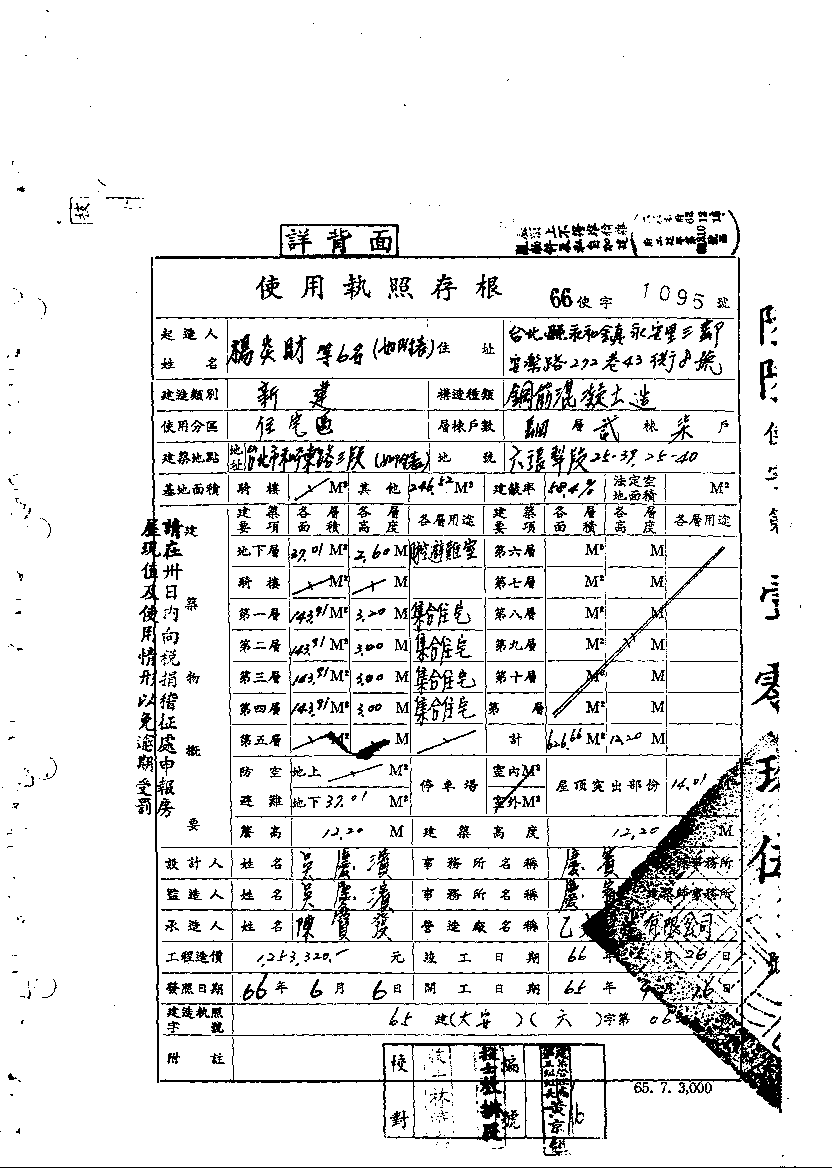 技
詳背面
使用執照存根 66使字 1095 號
起造人姓名 楊炎財 等6名 住址 台北縣永和鎮永安里三鄰
安樂路272巷43衖8號
建造類別 新建 構造種類 鋼筋混凝土造
使用分區 住宅區 層棟戶數 層 貳 棟 柒 戶
建築地點 地址 台北市和平東路三段 地號 六張犂段25-39.25-40
基地面積 騎樓 M² 其他 246.52 M² 建蔽率 58.4% 法定空地面積 M²
建築要項 各層面積 各層高度 各層用途 建築要項 各層面積 各層高度 各層用途
地下層 37.01 M² 2.60 M 防空避難室 第六層 M² M
騎樓 M² M 第七層 M² M
第一層 143.91 M² 3.20 M 集合住宅 第八層 M² M
第二層 143.91 M² 3.00 M 集合住宅 第九層 M² M
第三層 143.91 M² 3.00 M 集合住宅 第十層 M² M
第四層 143.91 M² 3.00 M 集合住宅 第 層 M² M
第五層 M² M 計 626.66 M² 12.20 M
防空避難 地上 M² 停車場 室內 M² 屋頂突出部份 14.01 M²
地下 37.01 M² 室外 M²
簷高 12.20 M 建築高度 12.20 M
設計人 姓名 吳慶 事務所名稱 慶 事務所
監造人 姓名 吳慶 事務所名稱 慶 建築師事務所
承造人 姓名 陳寶發 營造廠名稱 有限公司
工程造價 1,253,320.- 元 竣工日期 66 年 月 26 日
發照日期 66 年 6 月 6 日 開工日期 65 年 月 26 日
建造執照字號 65 建(大安)(六)字第
附註
建築物概要
請在卅日內向稅捐稽征處申報房
屋現值及使用情形以免逾期受罰
校對
編號
65.7.3,000
使字第
壹零玖伍
號